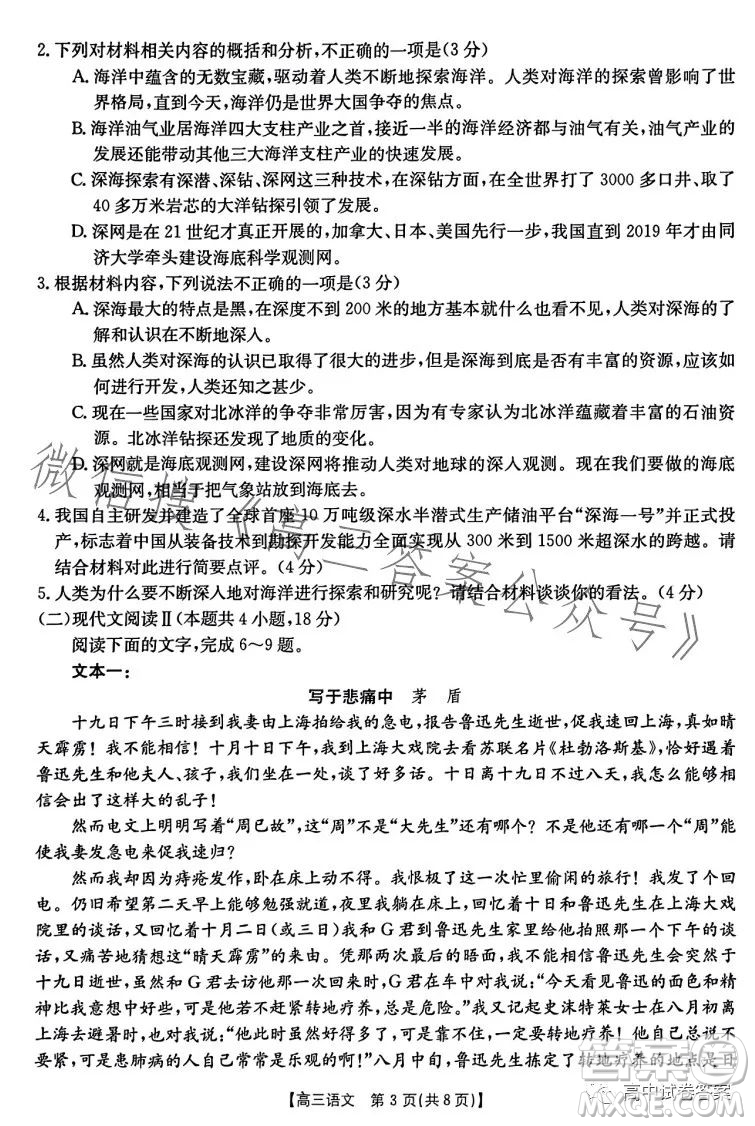 2. 下列对材料相关内容的概括和分析,不正确的一项是(3 分)
A. 海洋中蕴含的无数宝藏,驱动着人类不断地探索海洋。人类对海洋的探索曾影响了世
界格局,直到今天,海洋仍是世界大国争夺的焦点。
B. 海洋油气业居海洋四大支柱产业之首,接近一半的海洋经济都与油气有关,油气产业的
发展还能带动其他三大海洋支柱产业的快速发展。
C. 深海探索有深潜、深钻、深网这三种技术,在深钻方面,在全世界打了 3000 多口井、取了
40 多万米岩芯的大洋钻探引领了发展。
D. 深网在 21 世纪才真正开展的,加拿大、日本、美国先行一步,我国直到 2019 年才由同
济大学牵头建设海底科学观测网。
3. 根据材料内容,下列说法不正确的一项是(3 分)
A. 深海最大的特点是黑,在深度不到 200 米的地方基本就什么也看不见,人类对深海的了
解和认识在不断地深入。
B. 虽然人类对深海的认识已取得了很大的进步,但是深海是否有丰富的资源,应该如
何进行开发,人类还知之甚少。
C. 现在一些国家对北冰洋的争夺非常激烈,主要是因为北冰洋蕴藏着丰富的石油资
源。北冰洋钻探还发现了地质的变化。
D. 深网就是海底观测网,建设深网将推动人类对地球的深入观测。人类要做的海底
观测网,相当于把气象站放到海底去。
4. 我国自主研发并建造了全球首座 10 万吨级深水半潜式生产储油平台“深海一号”并正式投
产,标志着中国从装备技术到勘探开发能力全面实现从 300 米到 1500 米超深水的跨越。请
结合材料对此进行简要点评。(4 分)
5. 人类为什么要不断深入地对海洋进行探索和研究呢?请结合材料谈谈你的看法。(4 分)
(二)现代文阅读Ⅱ(本题共 4 小题,18 分)
阅读下面的文字,完成 6~9 题。
文本一:
写于悲痛中 茅 盾
十九日下午三时接到我妻由上海拍给我的急电,报告鲁迅先生逝世,促我速回上海,真如晴
天霹雳!我不能相信!十月十日下午,我到上海大戏院去看苏联名片《杜勃洛斯基》,恰好遇着
鲁迅先生和他夫人、孩子,我们坐在一处,谈了好多话。十日离十九日不过八天,我怎么能够相
信会出了这样大的乱子!
然而电文上明明写着“周已故”,这“周”不是“大先生”还有哪个?不是他还有哪一个“周”能
使我妻发急电来促我速归?
我因为痔疮发作,卧在床上动不得。我恨极了我这一次忙里偷闲的旅行!我发了回
电。仍旧希望第二天早上能够勉强就道。那一夜,我躺在床上,回忆那天在上海大戏
院里的谈话,又回忆十月二日(或三日)我和G君到鲁迅先生家里给他拍照那一个下午的谈
话,又痛苦地猜想这“晴天霹雳”的来由。无论如何,我不能相信鲁迅先生会在
十九日逝世,虽然和G君去看了鲁迅先生出来时,G君在车中对我说:“今天看见鲁迅的面色和精
神比我意想中好,可是他要不赶紧转地疗养,总是危险。”我又记起史沫特莱女士在八月初离
上海去避暑时,也对我说:“他此时虽然好得多了,可是,一定要转地疗养。他自己总说不
要紧,可是患肺病的人自己常常是乐观的啊!”八月中旬,鲁迅先生拣定了转地疗养的地点是日
【高三语文 第 3 页(共 8 页)】
微信搜《高三答案公众号》
高中试卷答案